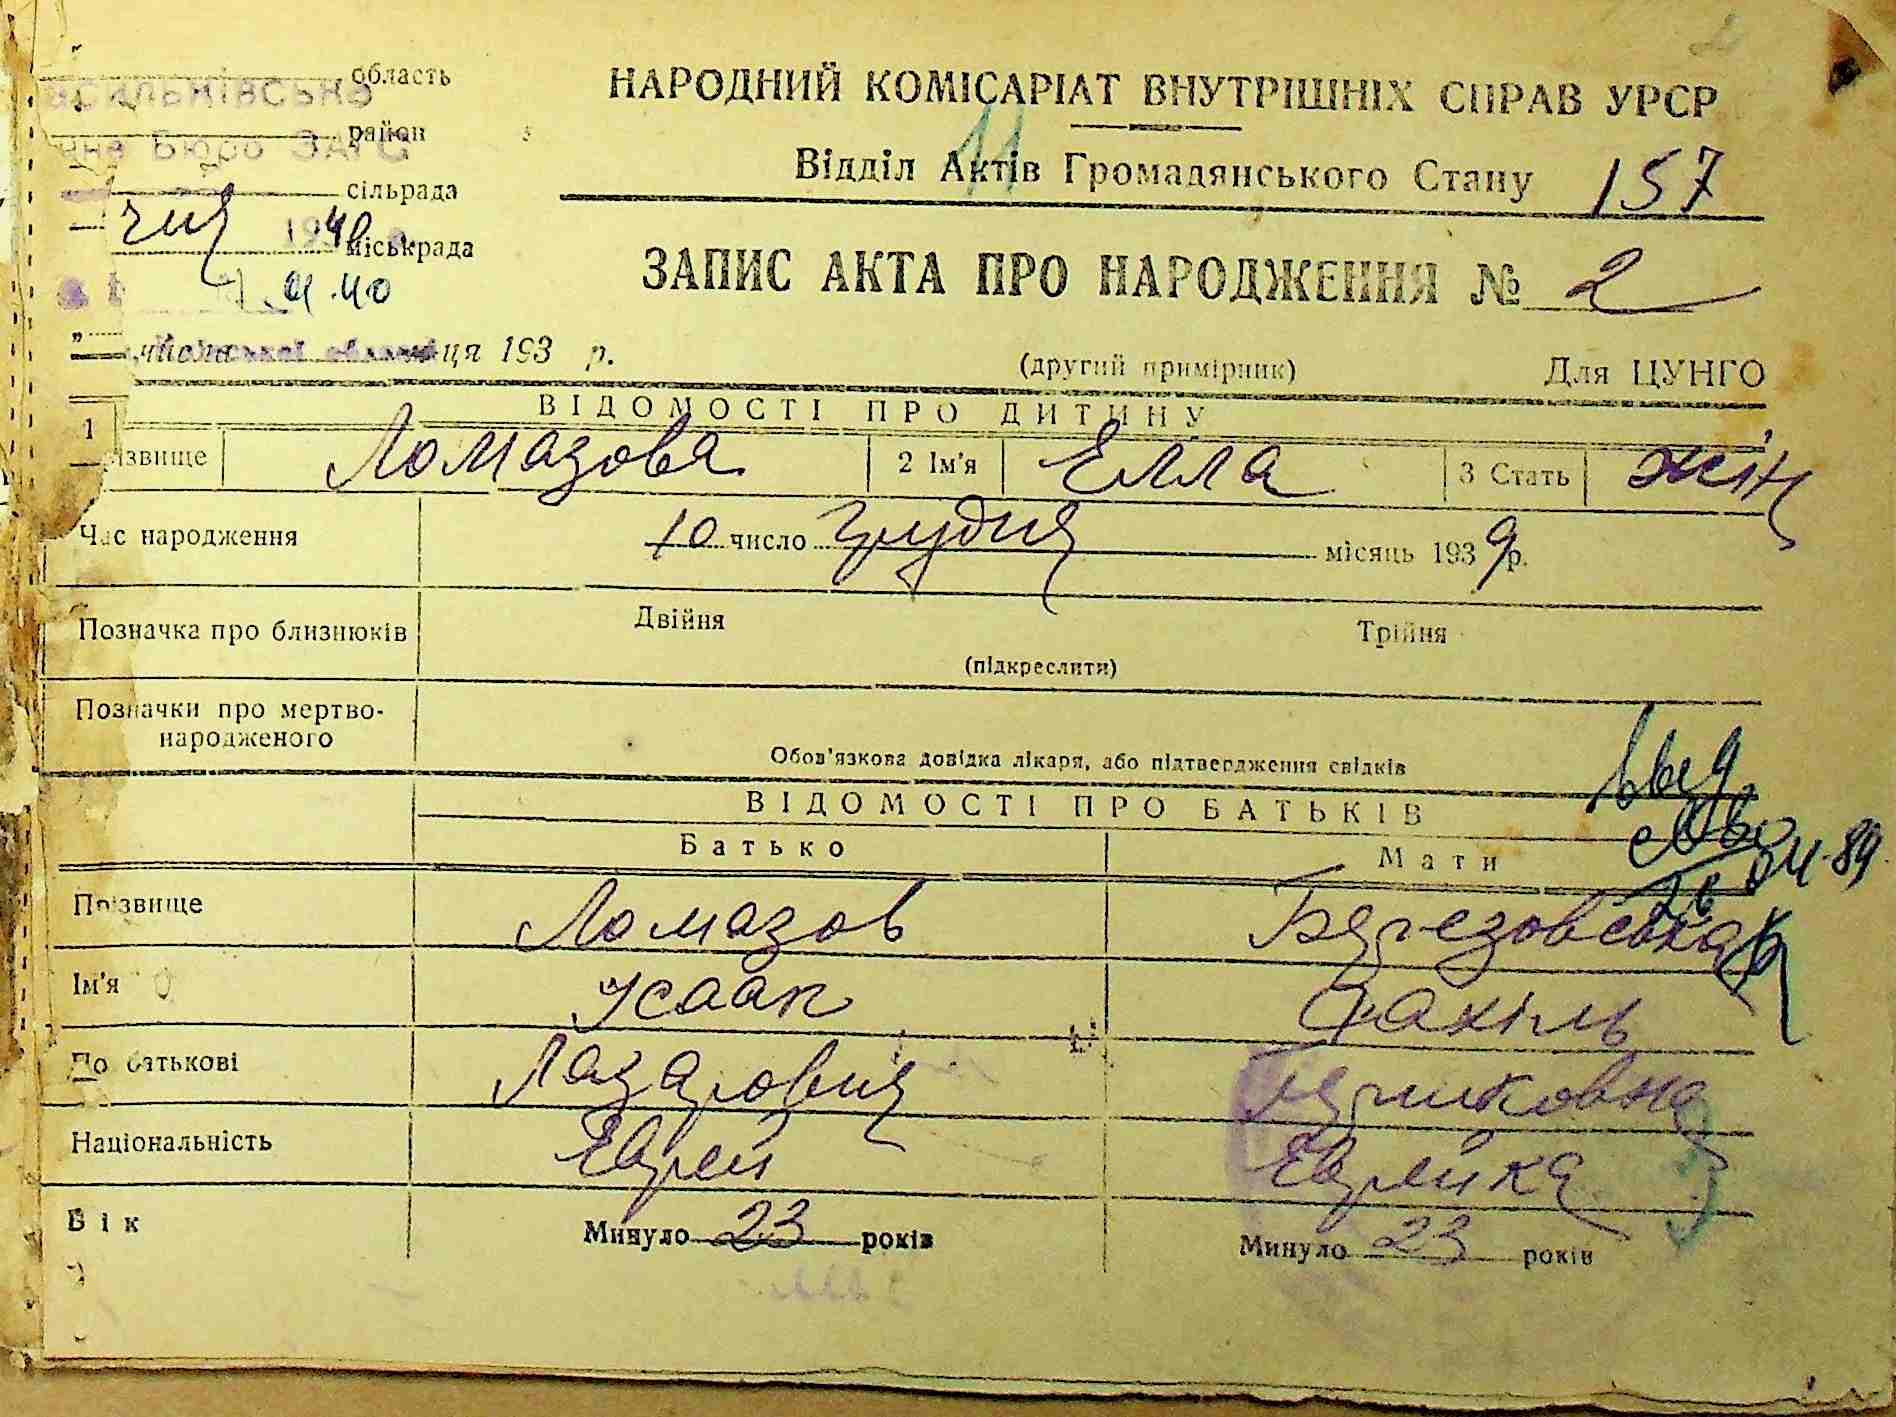 область
район
сільрада
міськрада
1940
НАРОДНИЙ КОМІСАРІАТ ВНУТРІШНІХ СПРАВ УРСР
Відділ Актів Громадянського Стану 157
ЗАПИС АКТА ПРО НАРОДЖЕННЯ № 2
193 р.
(другий примірник) Для ЦУНГО
ВІДОМОСТІ ПРО ДИТИНУ
1 різвище Ломазова 2 Ім'я Елла 3 Стать жін
Час народження 10 число грудня місяць 1939 р.
Позначка про близнюків Двійня Трійня
(підкреслити)
Позначки про мертво-
народженого
Обов'язкова довідка лікаря, або підтвердження свідків
ВІДОМОСТІ ПРО БАТЬКІВ
Батько Мати
Прізвище Ломазов Березовська
Ім'я Ісаак Рахіль
По батькові Лазарович
Національність Еврей Еврейка
Вік Минуло 23 років Минуло 23 років